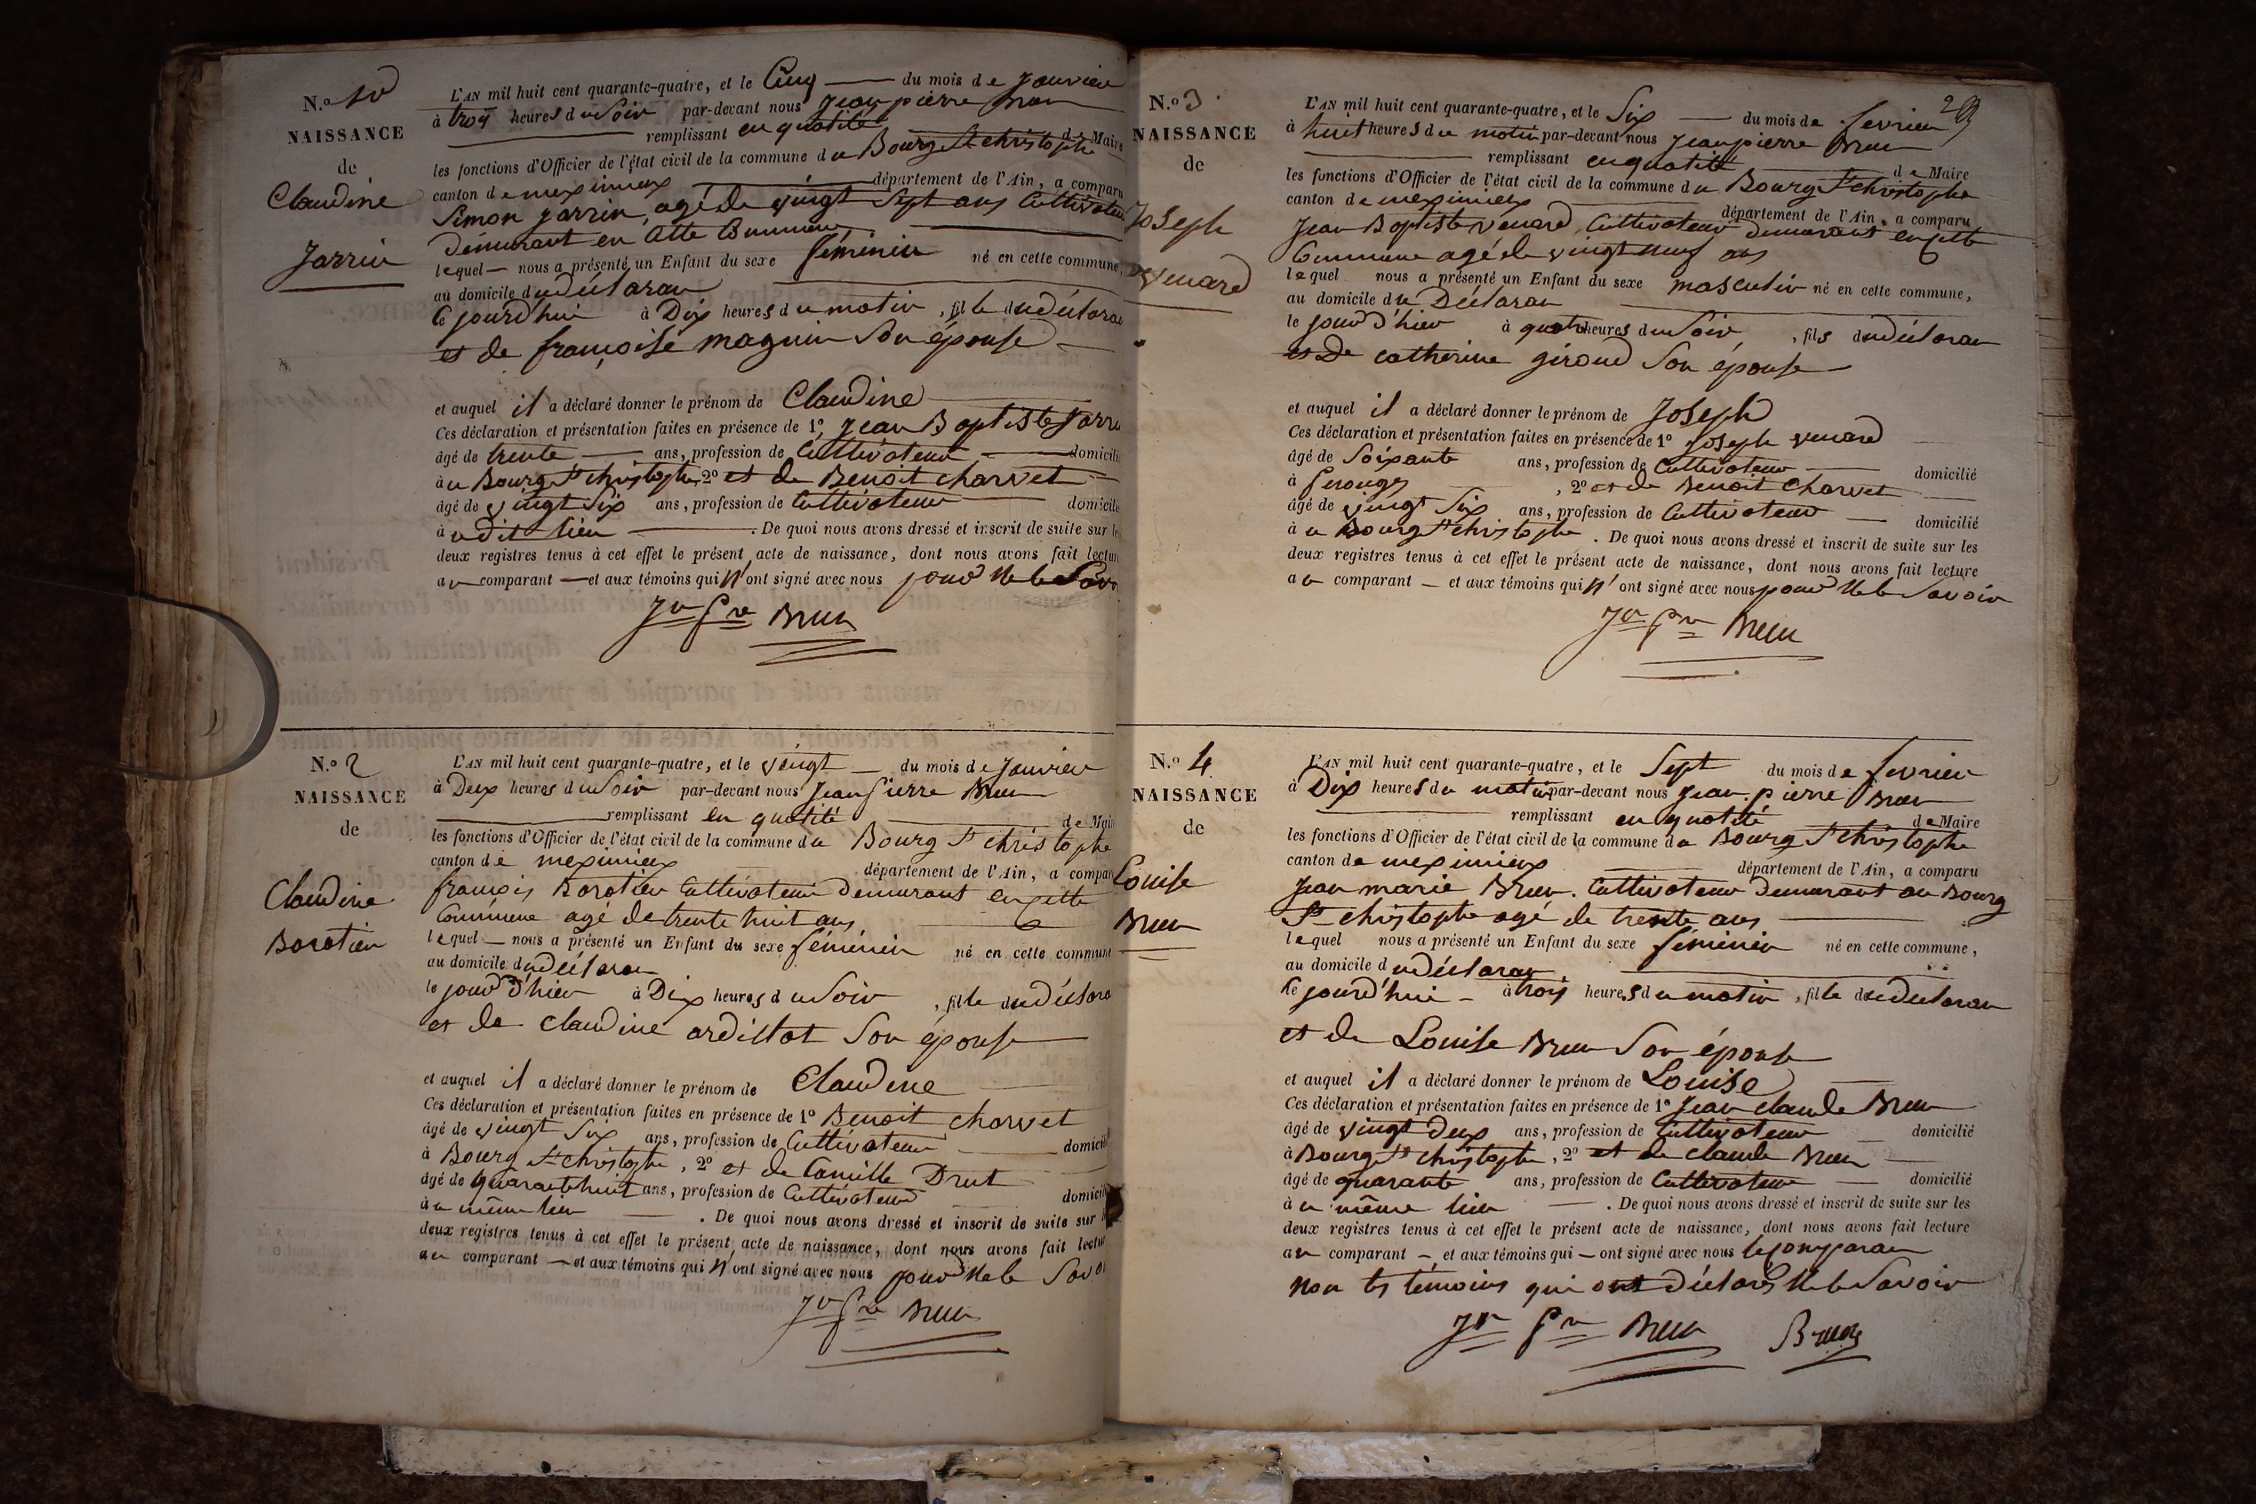 N.o 1er
NAISSANCE
de
Claudine
Jarrin
L'AN mil huit cent quarante-quatre, et le Cinq du mois de Janvier
à trois heures du Soir par-devant nous Jean pierre Brun
remplissant en qualité de Maire
les fonctions d'Officier de l'état civil de la commune du Bourg St christophe
canton de meximieux département de l'Ain, a comparu
Simon Jarrin, agé de vingt Sept ans Cultivateu
Demurant en Cette Commune
lequel nous a présenté un Enfant du sexe féminin né en cette commune,
au domicile du déclaran
le jourd'hui à Dix heures du matin, fille du déclaran
et de françoise magnin Son épouse
et auquel il a déclaré donner le prénom de Claudine
Ces déclaration et présentation faites en présence de 1o Jean Baptiste Jarri
âgé de trente ans, profession de Cultivateur domicili
à u Bourg St christophe, 2o et de Benoit charvet
âgé de vingt Six ans, profession de Cultivateur domicilé
à u dit lieu. De quoi nous avons dressé et inscrit de suite sur le
deux registres tenus à cet effet le présent acte de naissance, dont nous avons fait lectur
au comparant et aux témoins qui n'ont signé avec nous pour ne le Savo
Jn Pre Brun
N.o 2
NAISSANCE
de
Claudine
Baratier
L'AN mil huit cent quarante-quatre, et le vingt du mois de Janvier
à Deux heures du Soir par-devant nous Jean pierre Brun
remplissant en qualité de Mair
les fonctions d'Officier de l'état civil de la commune du Bourg St christophe
canton de meximieux département de l'Ain, a compar
françois Baratier Cultivateur Demurant en Cette
Commune agé de trente huit ans
lequel nous a présenté un Enfant du sexe féminin né en cette commune
au domicile du déclaran
le jour d'hier à Dix heures du Soir, fille du déclara
et de Claudine ardillat Son épouse
et auquel il a déclaré donner le prénom de Claudine
Ces déclaration et présentation faites en présence de 1o Benoit charvet
âgé de vingt Six ans, profession de Cultivateur domicil
à Bourg St christophe, 2o et de Camille Drut
âgé de quarante huit ans, profession de Cultivateur domicil
à u même lieu. De quoi nous avons dressé et inscrit de suite sur l
deux registres tenus à cet effet le présent acte de naissance, dont nous avons fait lectur
au comparant et aux témoins qui n'ont signé avec nous pour ne le Savoi
Jn Pre Brun
2
N.o 3
NAISSANCE
de
Joseph
venard
L'AN mil huit cent quarante-quatre, et le Six du mois de fevrier
à huit heures du matin par-devant nous Jean pierre Brun
remplissant en qualité de Maire
les fonctions d'Officier de l'état civil de la commune du Bourg St christophe
canton de meximieux département de l'Ain, a comparu
Jean Baptiste venard, Cultivateur demurant en Cette
Commune agé de vingt neuf ans
lequel nous a présenté un Enfant du sexe masculin né en cette commune,
au domicile du Déclaran
le jour d'hier à quatre heures du Soir, fils du déclaran
et De catherine giroud Son épouse
et auquel il a déclaré donner le prénom de Joseph
Ces déclaration et présentation faites en présence de 1o Joseph venard
âgé de Soixante ans, profession de Cultivateur domicilié
à perouges, 2o et de Benoit Charvet
âgé de vingt Six ans, profession de Cultivateur domicilié
à u Bourg St christophe. De quoi nous avons dressé et inscrit de suite sur les
deux registres tenus à cet effet le présent acte de naissance, dont nous avons fait lecture
au comparant et aux témoins qui n'ont signé avec nous pour ne le Savoir
Jn Pre Brun
N.o 4
NAISSANCE
de
Louise
Brun
L'AN mil huit cent quarante-quatre, et le Sept du mois de fevrier
à Dix heures du matin par-devant nous Jean pierre Brun
remplissant en qualité de Maire
les fonctions d'Officier de l'état civil de la commune du Bourg St christophe
canton de meximieux département de l'Ain, a comparu
Jean marie Brun. Cultivateur Demurant au Bourg
St christophe agé de trente ans
lequel nous a présenté un Enfant du sexe féminin né en cette commune,
au domicile du déclaran
le jourd'hui à trois heures du matin, fille du déclaran
et de Louise Brun Son épouse
et auquel il a déclaré donner le prénom de Louise
Ces déclaration et présentation faites en présence de 1o Jean claude Brun
âgé de vingt Deux ans, profession de Cultivateur domicilié
à Bourg St christophe, 2o et de claude Brun
âgé de quarante ans, profession de Cultivateur domicilié
à u même lieu. De quoi nous avons dressé et inscrit de suite sur les
deux registres tenus à cet effet le présent acte de naissance, dont nous avons fait lecture
au comparant et aux témoins qui ont signé avec nous le comparan
non les témoins qui ont déclarés ne le Savoir
Jn Pre Brun Brun